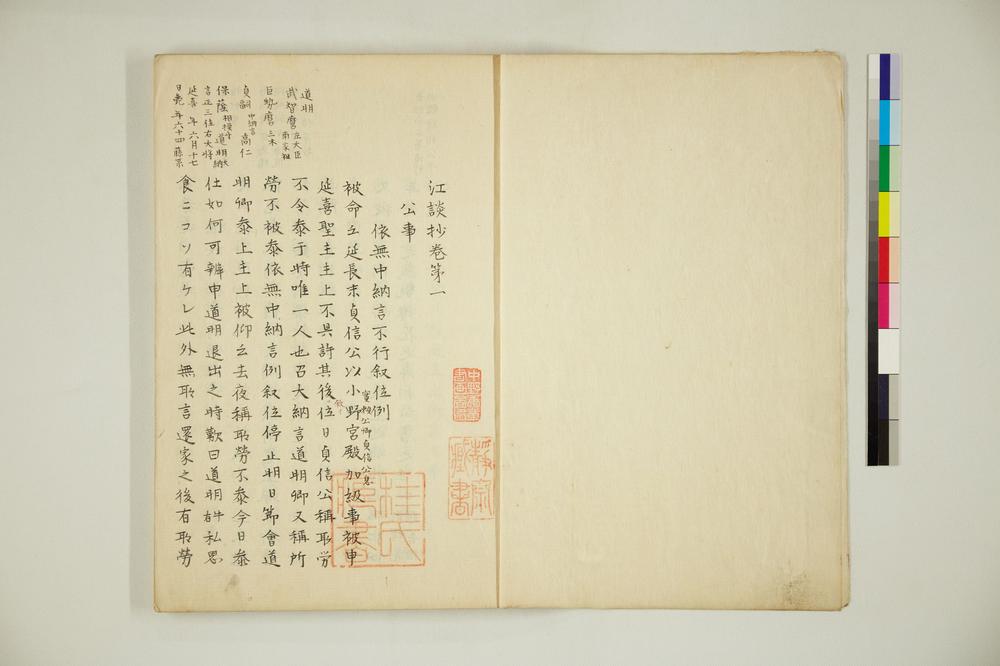 江談抄卷第一
公事
依無中納言不行叙位例
被命云延長末貞信公以小野宮殿加級事被申
實頼公卿貞信公息
延喜聖主主上不具許其後位日貞信公稱所労
叙
不令泰于時唯一人也召大納言道明卿又稱所
勞不被泰依無中納言例叙位停止明日節會道
明卿泰上主上被仰云去夜稱所勞不泰今日泰
仕如何可辨申道明退出之時歎曰道明許私思
食ニコソ有ケレ此外無所言還家之後有所勞
道明
武智麿 左大臣 南家祖
巨勢麿 三木
貞嗣 中納言 高仁
保蔭 相模守 道明 大納
言正三位右大将
延喜 年六月十七
日薨 年六十四
桂氏
藏書